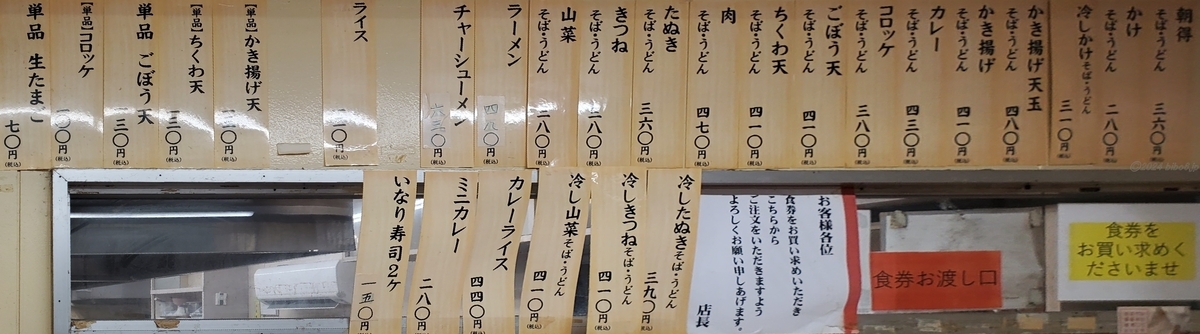 朝得
そば・うどん
三六〇円(税込)
かけ
そば・うどん
二八〇円(税込)
冷しかけそば・うどん
三一〇円(税込)
かき揚げ天玉
そば・うどん
四八〇円(税込)
かき揚げ
そば・うどん
四一〇円(税込)
カレー
そば・うどん
四三〇円(税込)
コロッケ
そば・うどん
三八〇円(税込)
ごぼう天
そば・うどん
四一〇円(税込)
ちくわ天
そば・うどん
四一〇円(税込)
肉
そば・うどん
四七〇円(税込)
たぬき
そば・うどん
三六〇円(税込)
きつね
そば・うどん
三八〇円(税込)
山菜
そば・うどん
三八〇円(税込)
ラーメン
円(税込)
チャーシューメン
円(税込)
ライス
円(税込)
【単品】かき揚げ天
円(税込)
【単品】ちくわ天
円(税込)
単品 ごぼう天
一三〇円(税込)
【単品】コロッケ
一〇〇円(税込)
単品 生たまご
七〇円(税込)
冷したぬきそば・うどん
三九〇円(税込)
冷しきつねそば・うどん
四一〇円(税込)
冷し山菜そば・うどん
四一〇円(税込)
カレーライス
四四〇円(税込)
ミニカレー
二八〇円(税込)
いなり寿司2ケ
一五〇円(税込)
お客様各位
食券をお買い求めいただき
こちらから
ご注文をいただきますよう
よろしくお願い申しあげます。
店長
食券お渡し口
食券を
お買い求めく
ださいませ